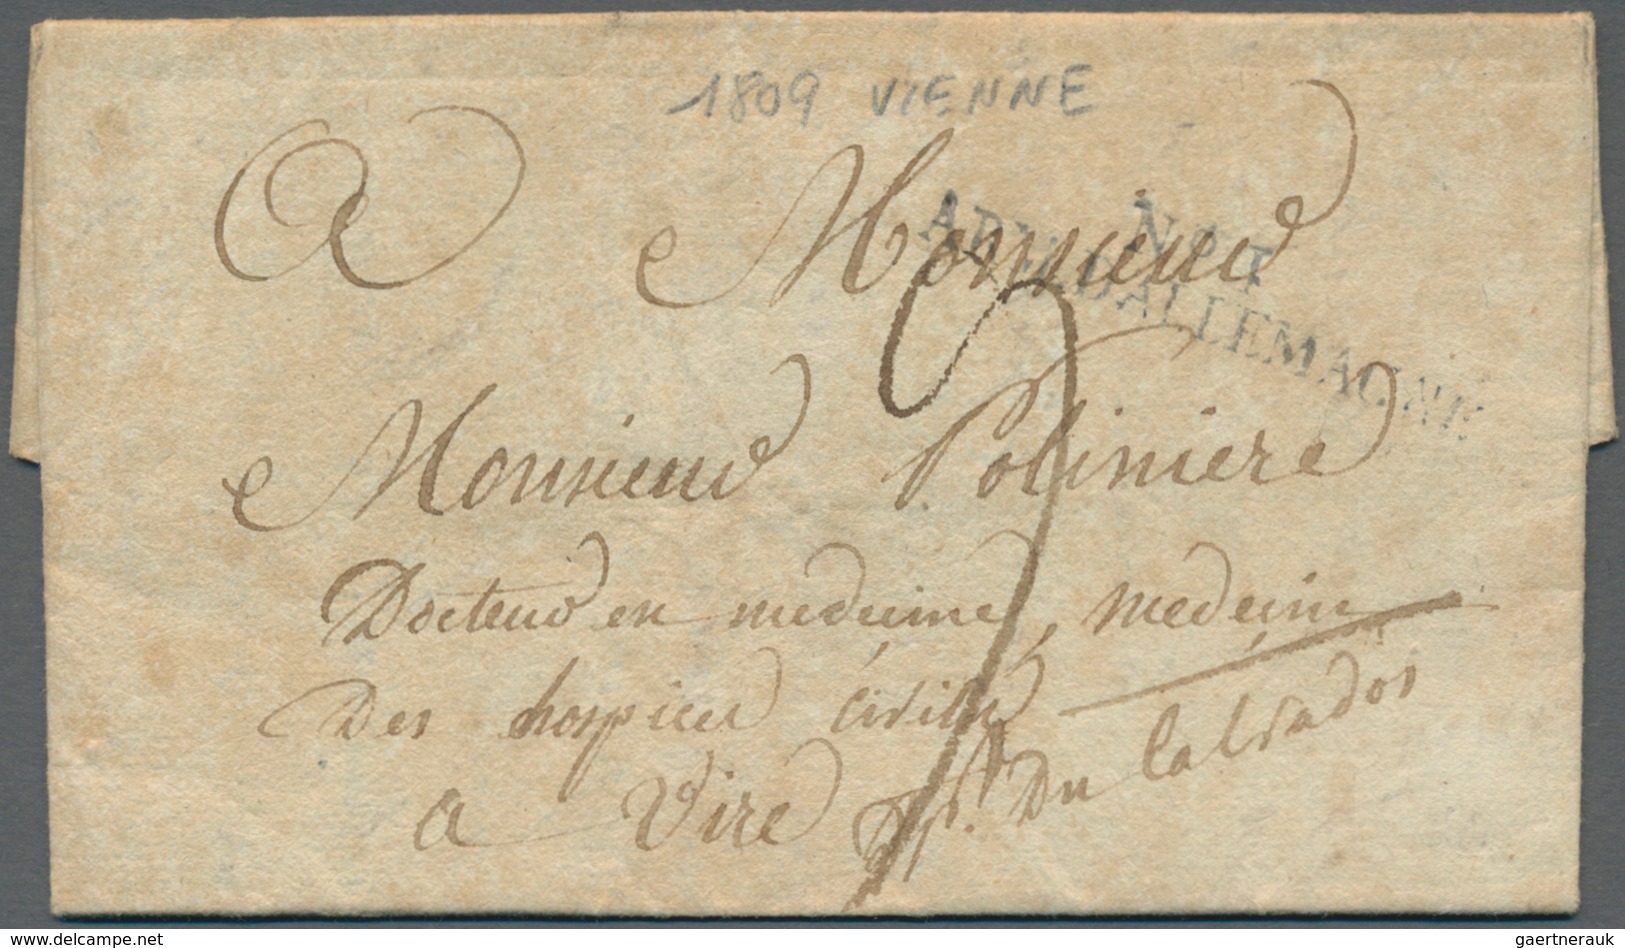 1809 VIENNE
A Monsieur
N° 1
ARM. D'ALLEMAGNE
Monsieur Polinière
Docteur en médecine, médecin
Des hospices civils
a Vire Dpt. Du Calvados
delcampe.net
gaertnerauk